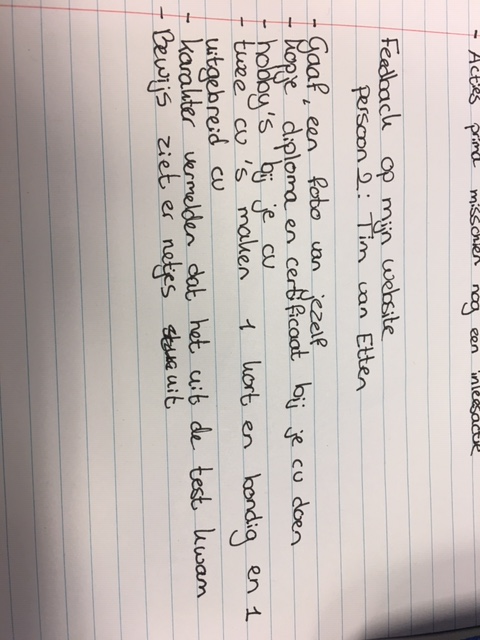 - Acties prima misschien nog een
Feedback op mijn website
persoon 2: Tim van Etten
- Gaaf, een foto van jezelf
- kopje diploma en certificaat bij je cv doen
- hobby's bij je cv
- twee cv's maken 1 kort en bondig en 1
uitgebreid cv
- karakter vermelden dat het uit de test kwam
- Bewijs ziet er netjes uit